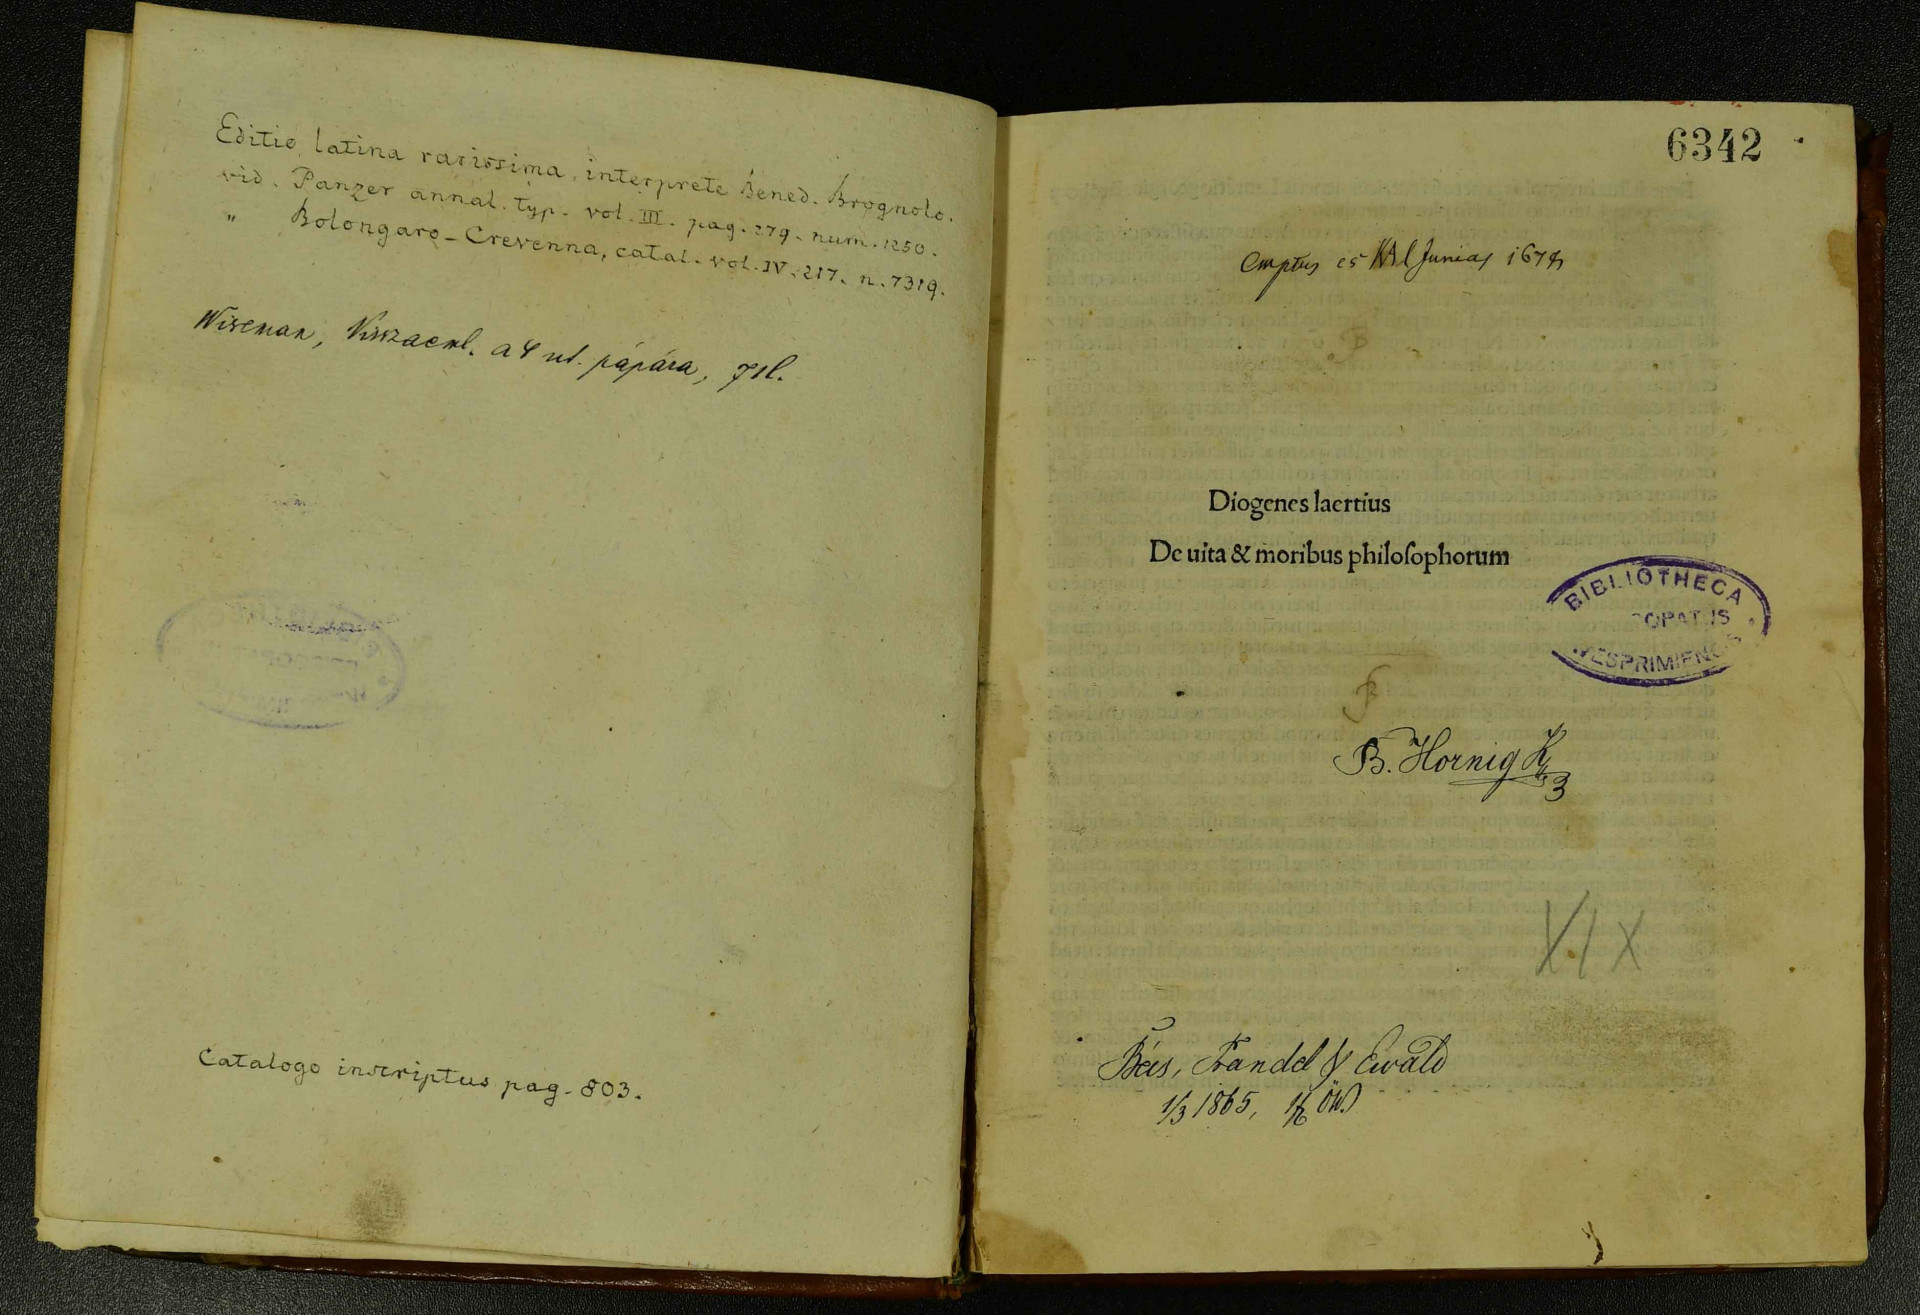 Editio latina rarissima, interprete Bened. Brognolo.
vid. Panzer annal. typ. vol. III. pag. 279. num. 1250.
" Bolongaro-Crevenna, catal. vol. IV. 217. n. 7319.
Wiseman, Visszaeml. a 4 ut. pápára, 71l.
Catalogo inscriptus pag. 803.
6342
emptus es Kal Junias
Diogenes laertius
De uita & moribus philoſophorum
BIBLIOTHECA
OPATUS
WESPRIMIENSIS
B. Hornig K
Bécs, Frandel & Ewald
1/3 1865,